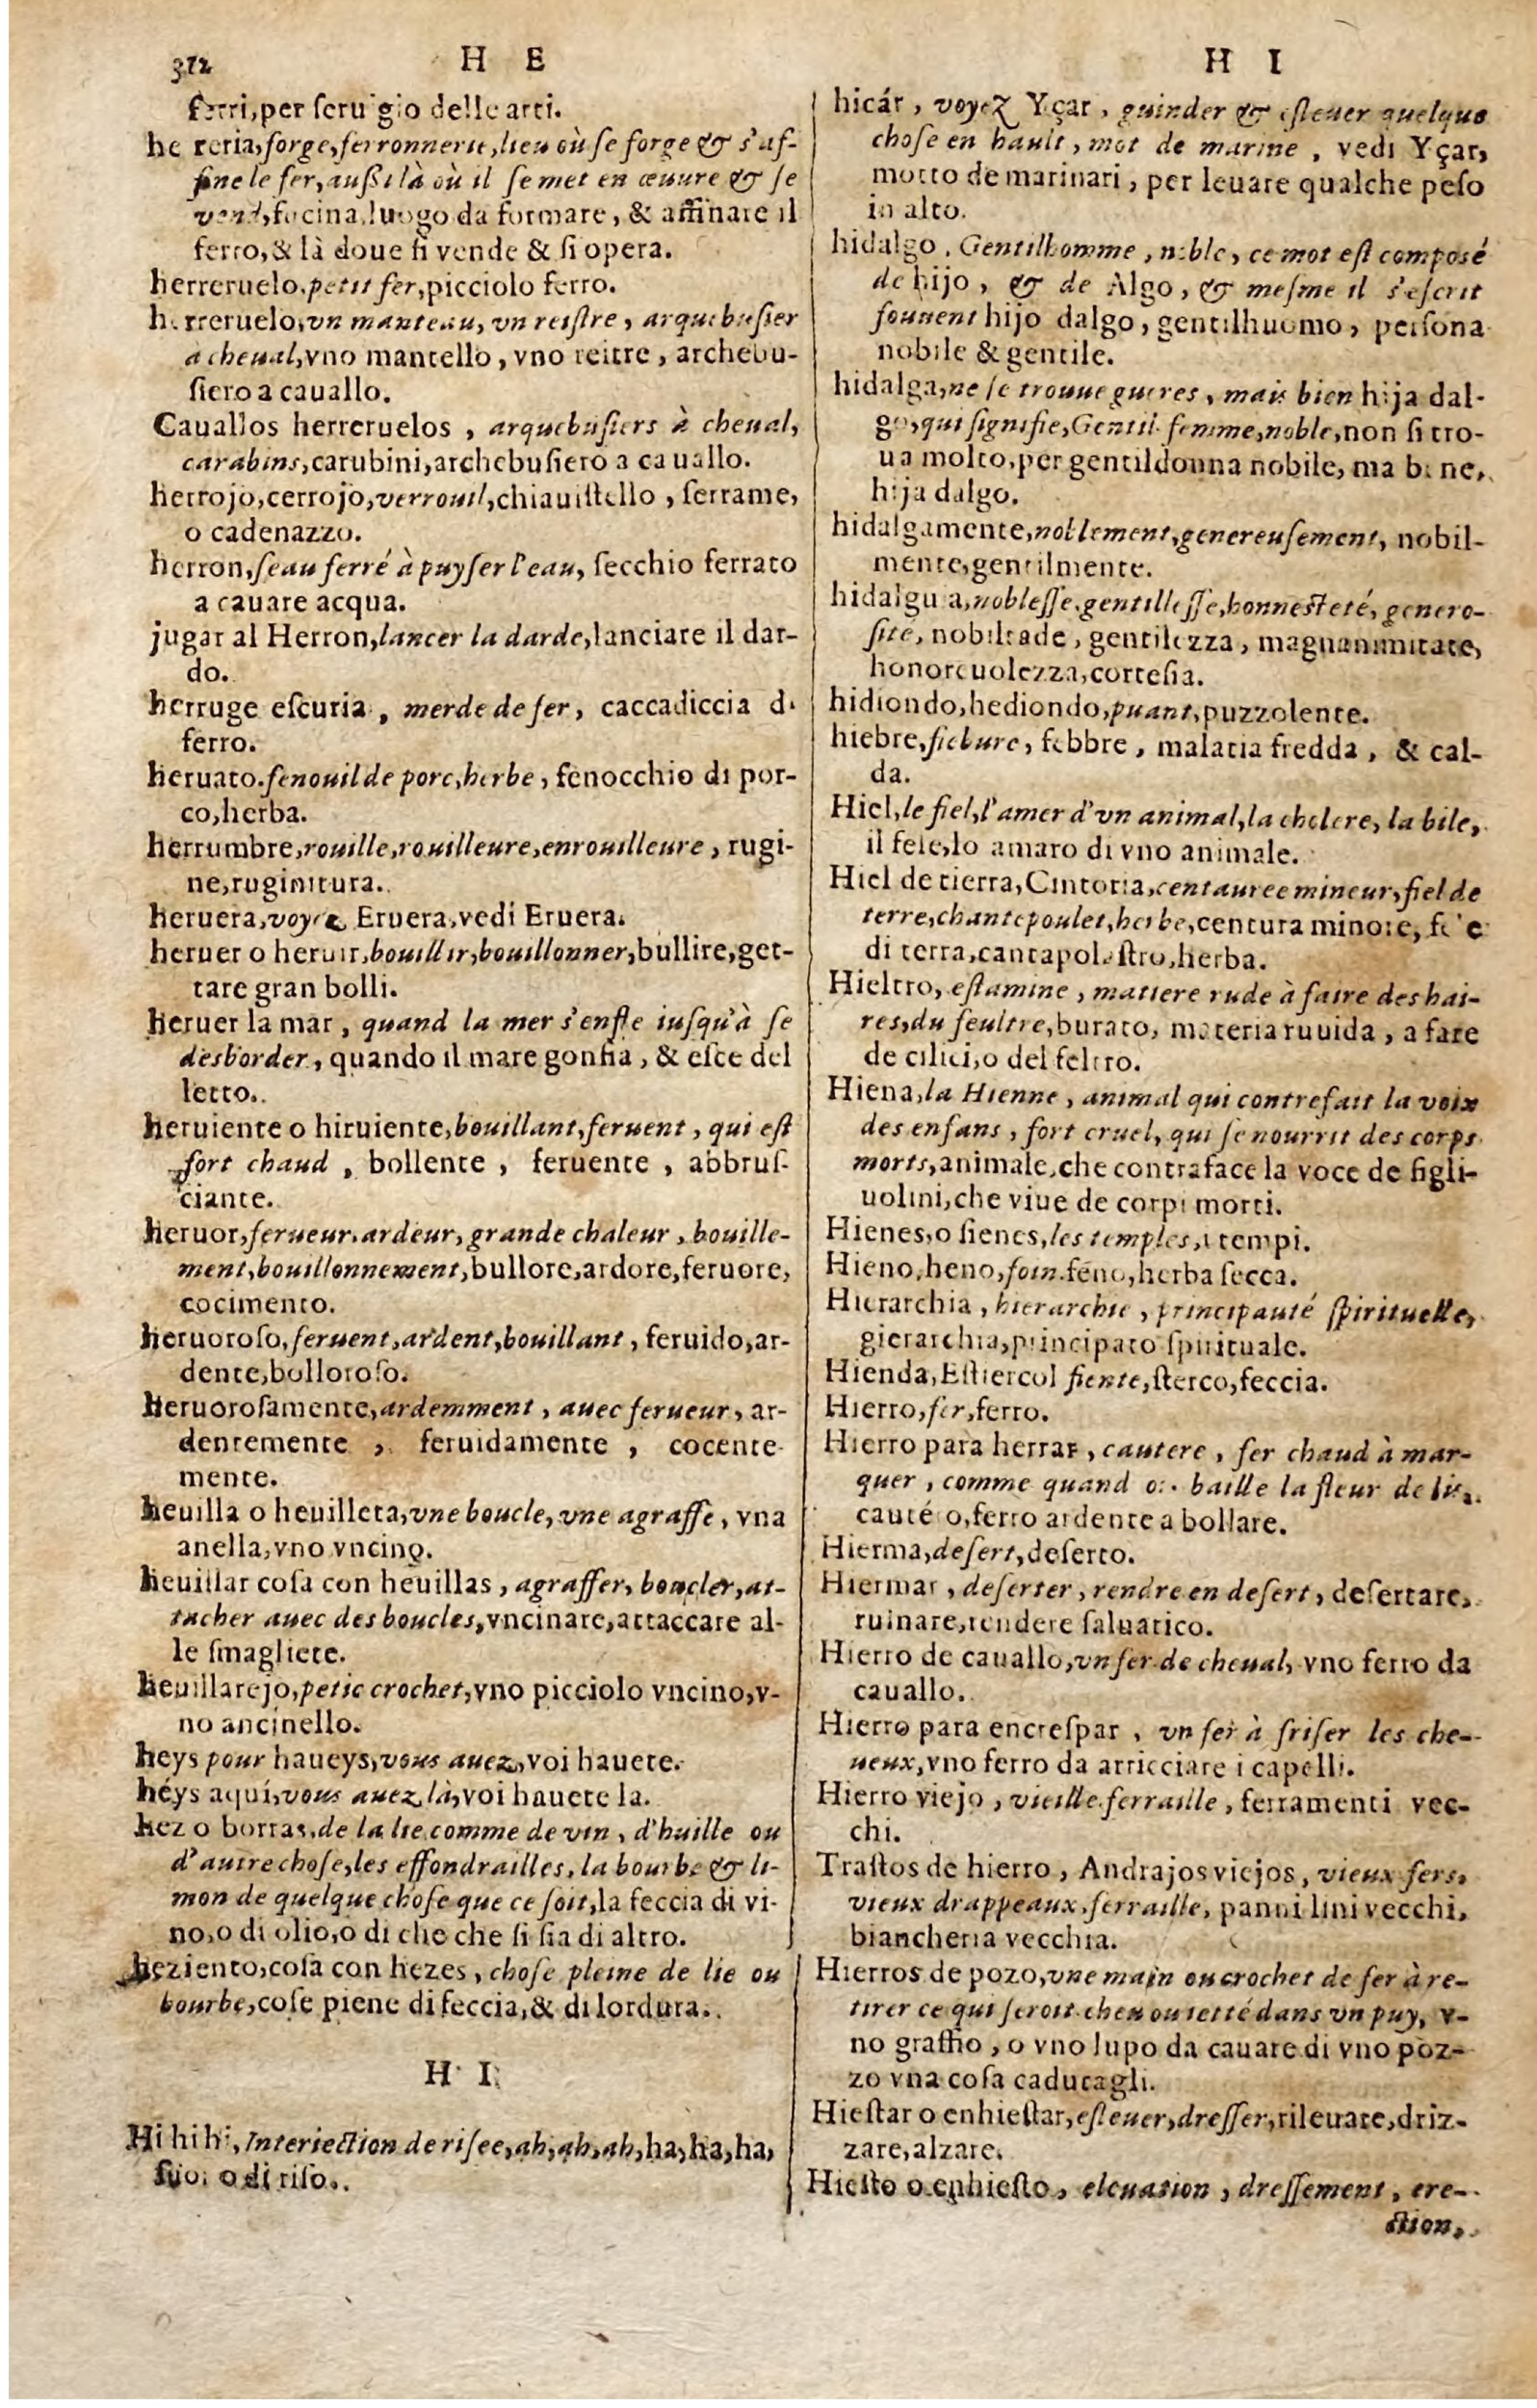 312
H E
H I
ferri, per seruigio delle arti.
herreria, forge, ferronnerie, lieu où se forge & s'af-
fine le fer, aussi là où il se met en œuure & se
vend, fucina, luogo da formare, & affinare il
ferro, & là doue si vende & si opera.
herreruelo, petit fer, picciolo ferro.
herreruelo, vn manteau, vn reistre, arquebusier
a cheual, vno mantello, vno reitre, archebu-
siero a cauallo.
Cauallos herreruelos, arquebusiers à cheual,
carabins, carubini, archebusiero a cauallo.
herrojo, cerrojo, verrouil, chiauistello, serrame,
o cadenazzo.
herron, seau ferré à puyser l'eau, secchio ferrato
a cauare acqua.
jugar al Herron, lancer la darde, lanciare il dar-
do.
herruge escuria, merde de fer, caccadiccia di
ferro.
heruato. fenouil de porc, herbe, fenocchio di por-
co, herba.
herrumbre, rouille, rouilleure, enrouilleure, rugi-
ne, ruginitura.
heruera, voyez Eruera, vedi Eruera.
heruer o heruir, bouillir, bouillonner, bullire, get-
tare gran bolli.
heruer la mar, quand la mer s'enfle iusqu'à se
desborder, quando il mare gonfia, & esce del
letto.
heruiente o hiruiente, bouillant, feruent, qui est
fort chaud, bollente, feruente, abbrus-
ciante.
heruor, ferueur, ardeur, grande chaleur, bouille-
ment, bouillonnement, bullore, ardore, feruore,
cocimento.
heruoroso, feruent, ardent, bouillant, feruido, ar-
dente, bolloroso.
heruorosamente, ardemment, auec ferueur, ar-
dentemente, feruidamente, cocente
mente.
heuilla o heuilleta, vne boucle, vne agraffe, vna
anella, vno vncino.
heuillar cosa con heuillas, agraffer, boucler, at-
tacher auec des boucles, vncinare, attaccare al-
le smagliete.
heuillarejo, petit crochet, vno picciolo vncino, v-
no ancinello.
heys pour haueys, vous auez, voi hauete.
héys aquí, vous auez là, voi hauete la.
hez o borras, de la lie comme de vin, d'huille ou
d'autre chose, les effondrailles, la bourbe & li-
mon de quelque chose que ce soit, la feccia di vi-
no, o di olio, o di che che si sia di altro.
heziento, cosa con hezes, chose pleine de lie ou
bourbe, cose piene di feccia, & di lordura.
H I
Hi hi hi, Interiection de risee, ah, ah, ah, ha, ha, ha,
o di riso.
hicár, voyez Yçar, guinder & esleuer quelque
chose en hault, mot de marine, vedi Yçar,
motto de marinari, per leuare qualche peso
in alto.
hidalgo, Gentilhomme, noble, ce mot est composé
de hijo, & de Algo, & mesme il s'escrit
souuent hijo dalgo, gentilhuomo, persona
nobile & gentile.
hidalga, ne se trouue gueres, mais bien hija dal-
go, qui signifie, Gentil-femme, noble, non si tro-
ua molto, per gentildonna nobile, ma bene,
hija dalgo.
hidalgamente, noblement, genereusement, nobil-
mente, gentilmente.
hidalguia, noblesse, gentillesse, honnesteté, genero-
sité, nobiltade, gentilezza, magnanimitate,
honoreuolezza, cortesia.
hidiondo, hediondo, puant, puzzolente.
hiebre, fiebure, febbre, malatia fredda, & cal-
da.
Hiel, le fiel, l'amer d'vn animal, la cholere, la bile,
il fele, lo amaro di vno animale.
Hiel de tierra, Cintoria, centauree mineur, fiel de
terre, chantepoulet, herbe, centura minore, fele
di terra, cantapolastro, herba.
Hieltro, estamine, matiere rude à faire des hai-
res, du feultre, burato, materia ruuida, a fare
de cilici, o del feltro.
Hiena, la Hienne, animal qui contrefait la voix
des enfans, fort cruel, qui se nourrit des corps
morts, animale, che contraface la voce de figli-
uolini, che viue de corpi morti.
Hienes, o sienes, les temples, i tempi.
Hieno, heno, foin. feno, herba secca.
Hierarchia, hierarchie, principauté spirituelle,
gierarchia, principato spirituale.
Hienda, Estiercol fiente, sterco, feccia.
Hierro, fer, ferro.
Hierro para herrar, cautere, fer chaud à mar-
quer, comme quand on baille la fleur de lis,
cautério, ferro ardente a bollare.
Hierma, desert, deserto.
Hiermar, deserter, rendre en desert, desertare,
ruinare, rendere saluatico.
Hierro de cauallo, vn fer de cheual, vno ferro da
cauallo.
Hierro para encrespar, vn fer à friser les che-
ueux, vno ferro da arricciare i capelli.
Hierro viejo, vieille ferraille, ferramenti vec-
chi.
Trastos de hierro, Andrajos viejos, vieux fers,
vieux drappeaux, ferraille, panni lini vecchi,
biancheria vecchia.
Hierros de pozo, vne main ou crochet de fer à re-
tirer ce qui seroit cheu ou ietté dans vn puy, v-
no graffio, o vno lupo da cauare di vno poz-
zo vna cosa caducagli.
Hiestar o enhiestar, esleuer, dresser, rileuare, driz-
zare, alzare.
Hiesto o enhiesto, eleuation, dressement, ere-
ction,